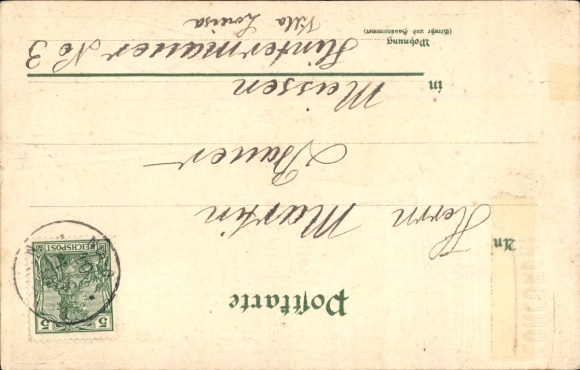 Postkarte
5
REICHSPOST
An
Herrn Martin
Bauer
in Meissen
Wohnung
(Straße und Hausnummer)
Hintermauer No 3
Villa Louisa